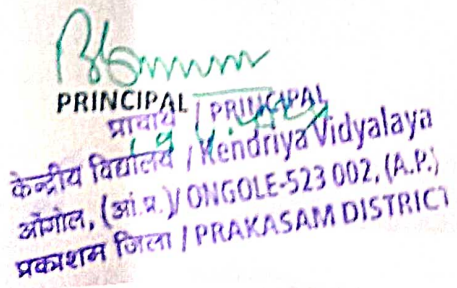 PRINCIPAL
प्राचार्य / PRINCIPAL
केन्द्रीय विद्यालय / Kendriya Vidyalaya
ओंगोल, (आं.प्र.)/ ONGOLE-523 002, (A.P.)
प्रकाशम जिला / PRAKASAM DISTRICT